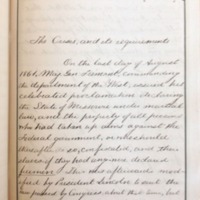 The Crisis, and its requirements
On the last day of August
1861, Maj. Gen. Fremont, commanding
the department of the West, issued his
celebrated proclamation declaring
the State of Missouri under martial
law, and the property of all persons
who had taken up arms against the
Federal government, or who should
so, confiscated, and their
slaves if they had any, were declared
freemen. This was afterwards modi-
fied by President Lincoln to suit the
law passed by Congress about that time, but